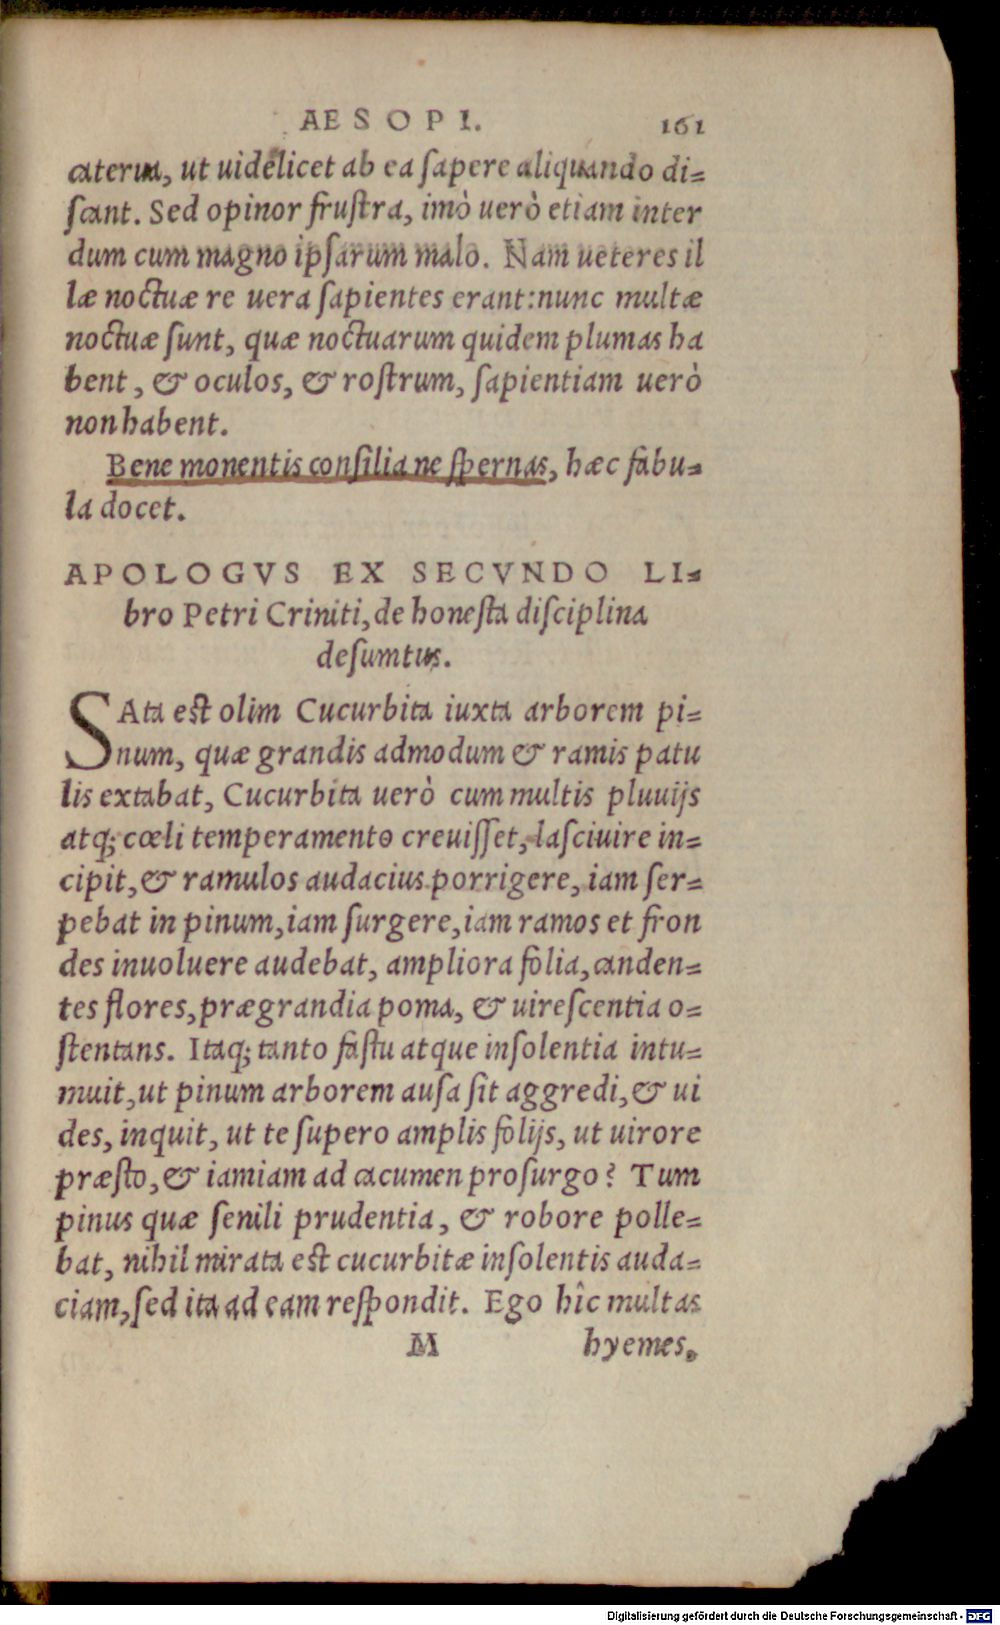 AESOPI. 161
caterua, ut uidelicet ab ea ſapere aliquando di=
ſcant. Sed opinor fruſtra, imò uerò etiam inter
dum cum magno ipſarum malo. Nam ueteres il
læ noctuæ re uera ſapientes erant: nunc multæ
noctuæ ſunt, quæ noctuarum quidem plumas ha
bent, & oculos, & roſtrum, ſapientiam uerò
non habent.
Bene monentis conſilia ne ſpernas, hæc fabu=
la docet.
APOLOGVS EX SECVNDO LI=
bro Petri Criniti, de honeſta diſciplina
deſumtus.
SAta eſt olim Cucurbita iuxta arborem pi=
num, quæ grandis admodum & ramis patu
lis extabat, Cucurbita uerò cum multis pluuijs
atq; cœli temperamento creuiſſet, laſciuire in=
cipit, & ramulos audacius porrigere, iam ſer=
pebat in pinum, iam ſurgere, iam ramos et fron
des inuoluere audebat, ampliora folia, canden=
tes flores, prægrandia poma, & uireſcentia o=
ſtentans. Itaq; tanto faſtu atque inſolentia intu=
muit, ut pinum arborem auſa ſit aggredi, & ui
des, inquit, ut te ſupero amplis folijs, ut uirore
præſto, & iamiam ad cacumen proſurgo? Tum
pinus quæ ſenili prudentia, & robore polle=
bat, nihil mirata eſt cucurbitæ inſolentis auda=
ciam, ſed ita ad eam reſpondit. Ego hîc multas
M hyemes,
Digitalisierung gefördert durch die Deutsche Forschungsgemeinschaft - DFG